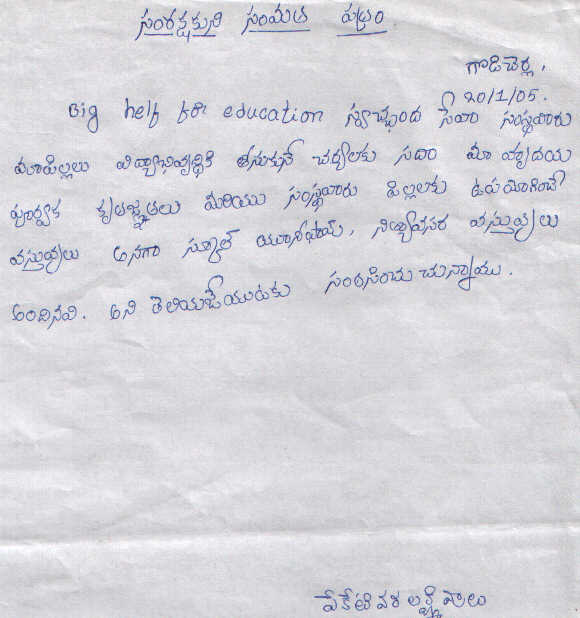 సంరక్షకుని సంమతి పత్రం
గొడిచెర్ల,
20/1/05.
Big help for education స్వచ్ఛంద సేవా సంస్థవారు
మాపిల్లలు విద్యాభివృద్ధికి తీసుకునే చర్యలకు సదా మా హృదయ
పూర్వక కృతజ్ఞతలు మరియు సంస్థవారు పిల్లలకు ఉపయోగించే
వస్తువులు అనగా స్కూల్ యూనిఫాం, నిత్యావసర వస్తువులు
అందినవి. అని తెలియజేయుటకు సంతసించు చున్నాము.